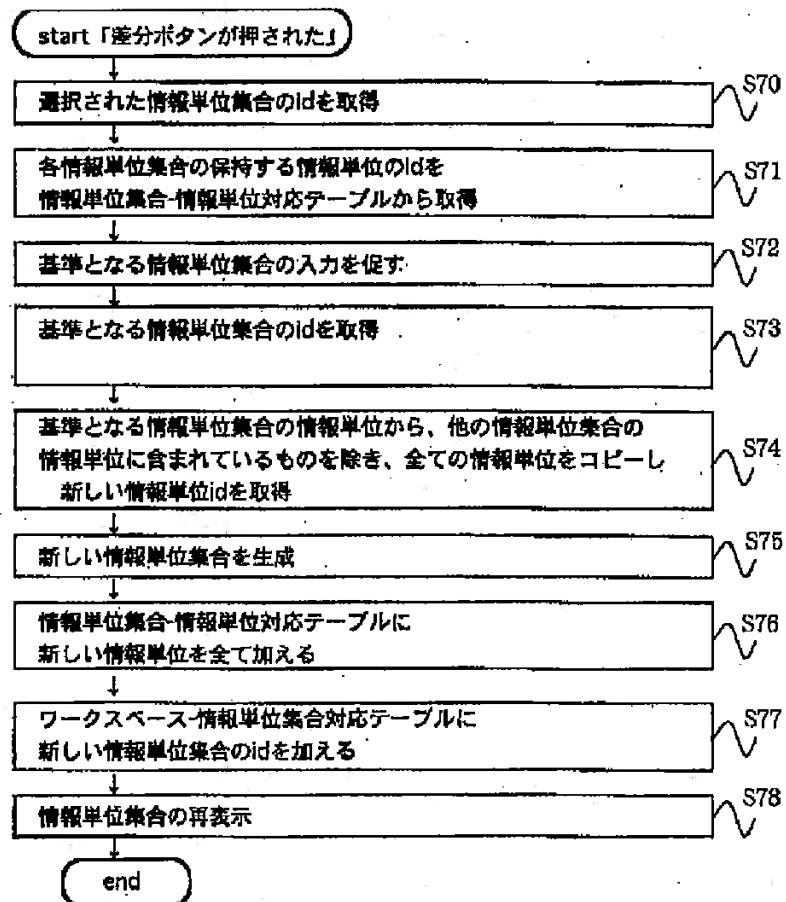 start「差分ボタンが押された」
選択された情報単位集合のidを取得
S70
各情報単位集合の保持する情報単位のidを
情報単位集合-情報単位対応テーブルから取得
S71
基準となる情報単位集合の入力を促す
S72
基準となる情報単位集合のidを取得
S73
基準となる情報単位集合の情報単位から、他の情報単位集合の
情報単位に含まれているものを除き、全ての情報単位をコピーし
新しい情報単位idを取得
S74
新しい情報単位集合を生成
S75
情報単位集合-情報単位対応テーブルに
新しい情報単位を全て加える
S76
ワークスペース-情報単位集合対応テーブルに
新しい情報単位集合のidを加える
S77
情報単位集合の再表示
S78
end